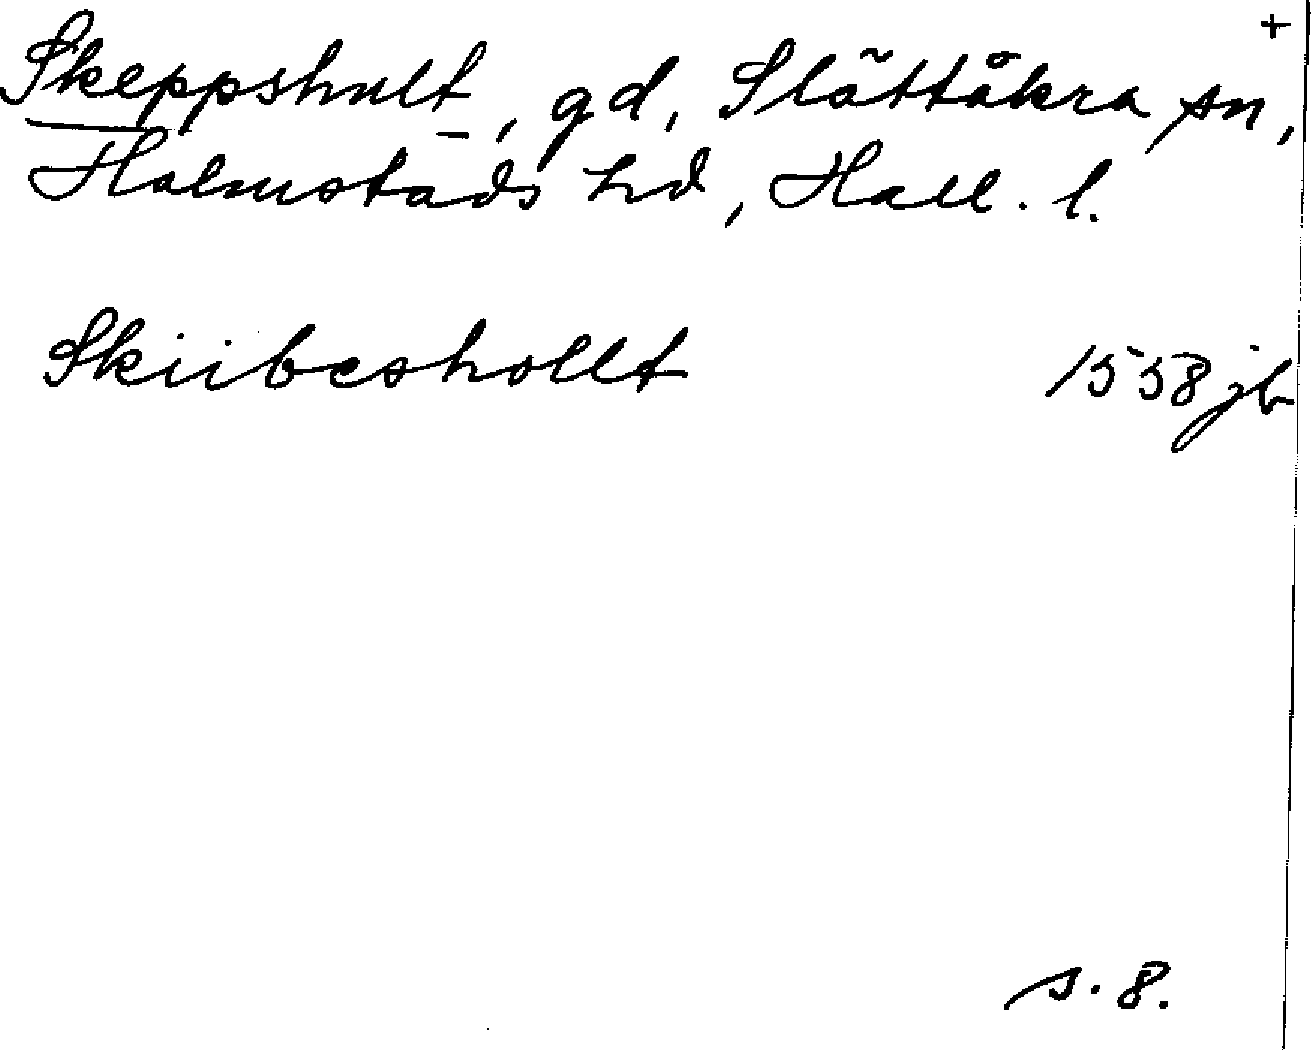 +
Skeppshult, gd, Slättåkra sn,
Halmstads hd, Hall. l.
Skiibeshollt 1558 jb
s. 8.